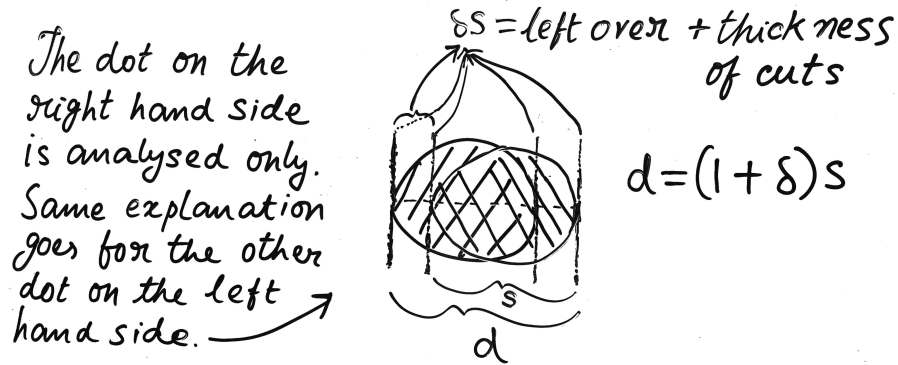 The dot on the
right hand side
is analysed only.
Same explanation
goes for the other
dot on the left
hand side.
δS = left over + thickness
of cuts
d = (1 + δ)s
s
d